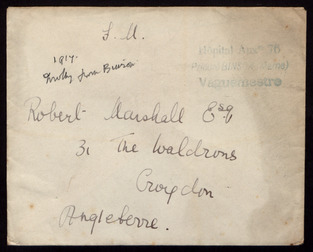 F. M.
1917.
Hôpital Aux. 76
Vaguemestre
Robert Marshall Esq
31 The Waldrons
Croydon
Angleterre.